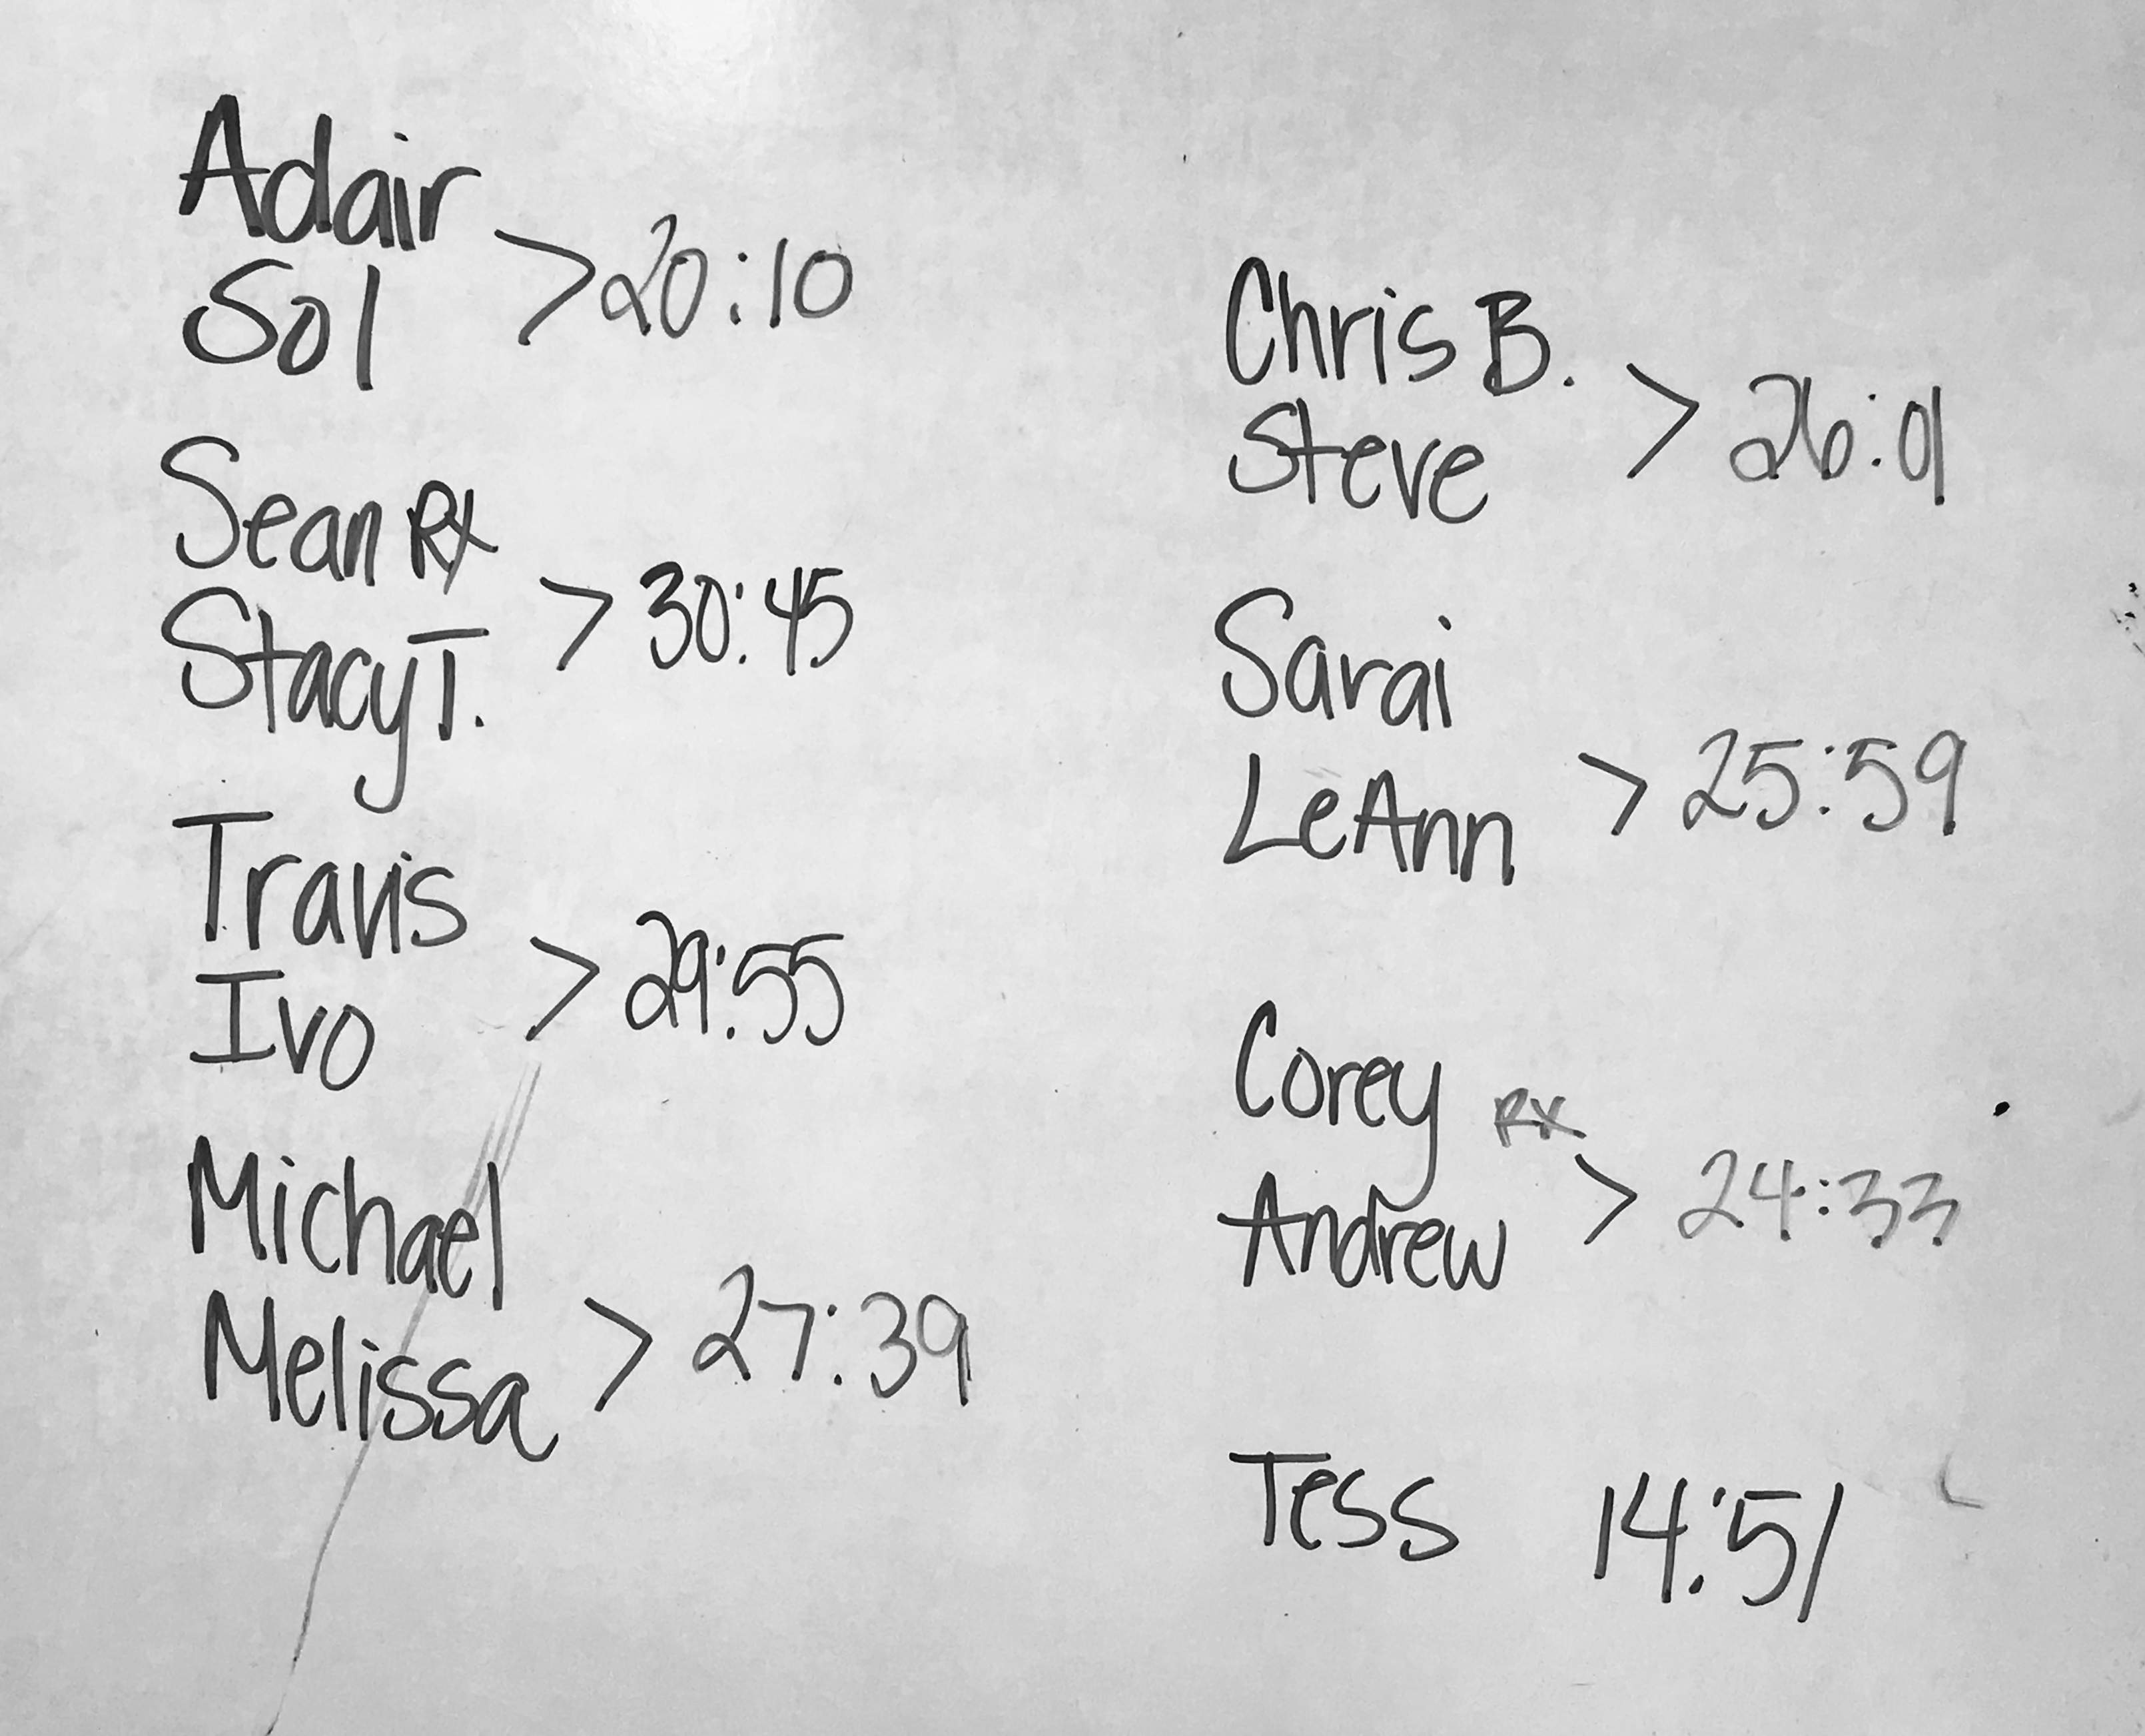 Adair
Sol > 20:10
Sean RX
Stacy T. > 30:45
Travis
Ivo > 29:55
Michael
Melissa > 27:39
Chris B.
Steve > 26:01
Sarai
LeAnn > 25:59
Corey RX
Andrew > 24:33
Tess 14:51